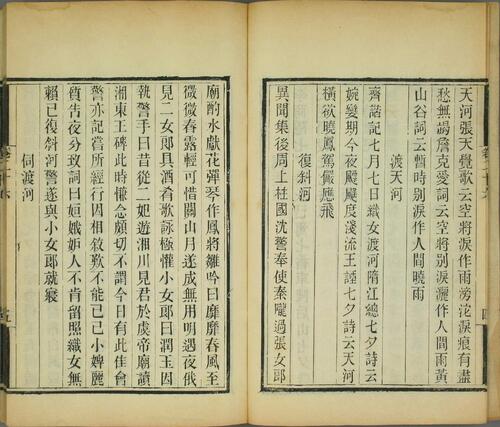 天河張天覺歌云空將淚作雨滂沱淚痕有盡
愁無歇詹克愛詞云空將別淚灑作人間雨黃
山谷詞云暫時別淚作人間曉雨
渡天河
齊諧記七月七日織女渡河隋江總七夕詩云
婉孌期今夜飄颻度淺流王諲七夕詩云天河
橫欲曉鳳駕儼應飛
復斜河
異聞集後周上柱國沈警奉使秦隴過張女郎
廟酌水獻花彈琴作鳳將雛吟曰靡靡春風至
微微春露輕可惜關山月還成無用明遇夜俄
見二女郎具酒肴歌詠極懽小女郎曰潤玉因
執警手曰昔從二妃遊湘川見君於虞帝廟讀
湘東王碑此時憶念頗切不謂今日有此佳會
警亦記嘗所經行因相敘歎不能已已小婢麗
質告夜分致詞曰姮娥妒人不肯留照織女無
賴已復斜河警遂與小女郎就寢
伺渡河